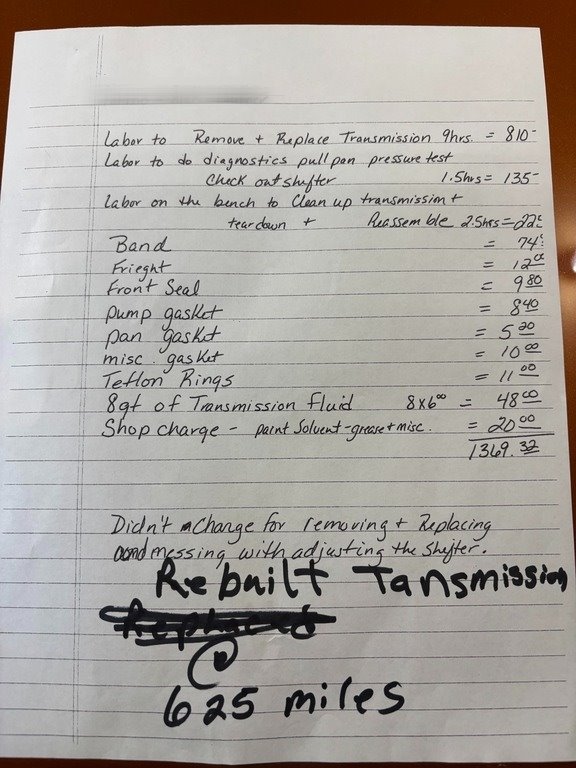 Labor to Remove + Replace Transmission 9hrs. = 810-
Labor to do diagnostics pull pan pressure test
Check out shifter 1.5hrs = 135-
Labor on the bench to Clean up transmission +
tear down + Reassemble 2.5hrs =
Band = 74
Frieght = 12 00
Front Seal = 9 80
Pump gasket = 8 40
pan gasket = 5 20
misc. gasket = 10 00
Teflon Rings = 11 00
8qt of Transmission fluid 8x6 00 = 48 00
Shop charge - paint Solvent-grease + misc. = 20 00
1369.32
Didn't Charge for removing + Replacing
and messing with adjusting the shifter.
Rebuilt Tansmission
@
625 miles